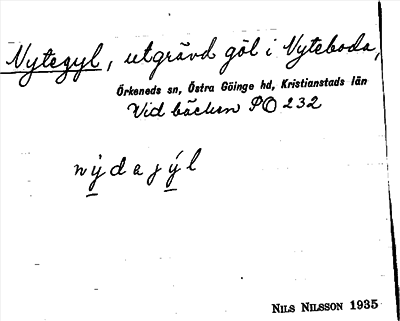 Nytegyl, utgrävd göl i Nyteboda,
Örkeneds sn, Östra Göinge hd, Kristianstads län
Vid bäcken PO 232
nýdajýl
NILS NILSSON 1935